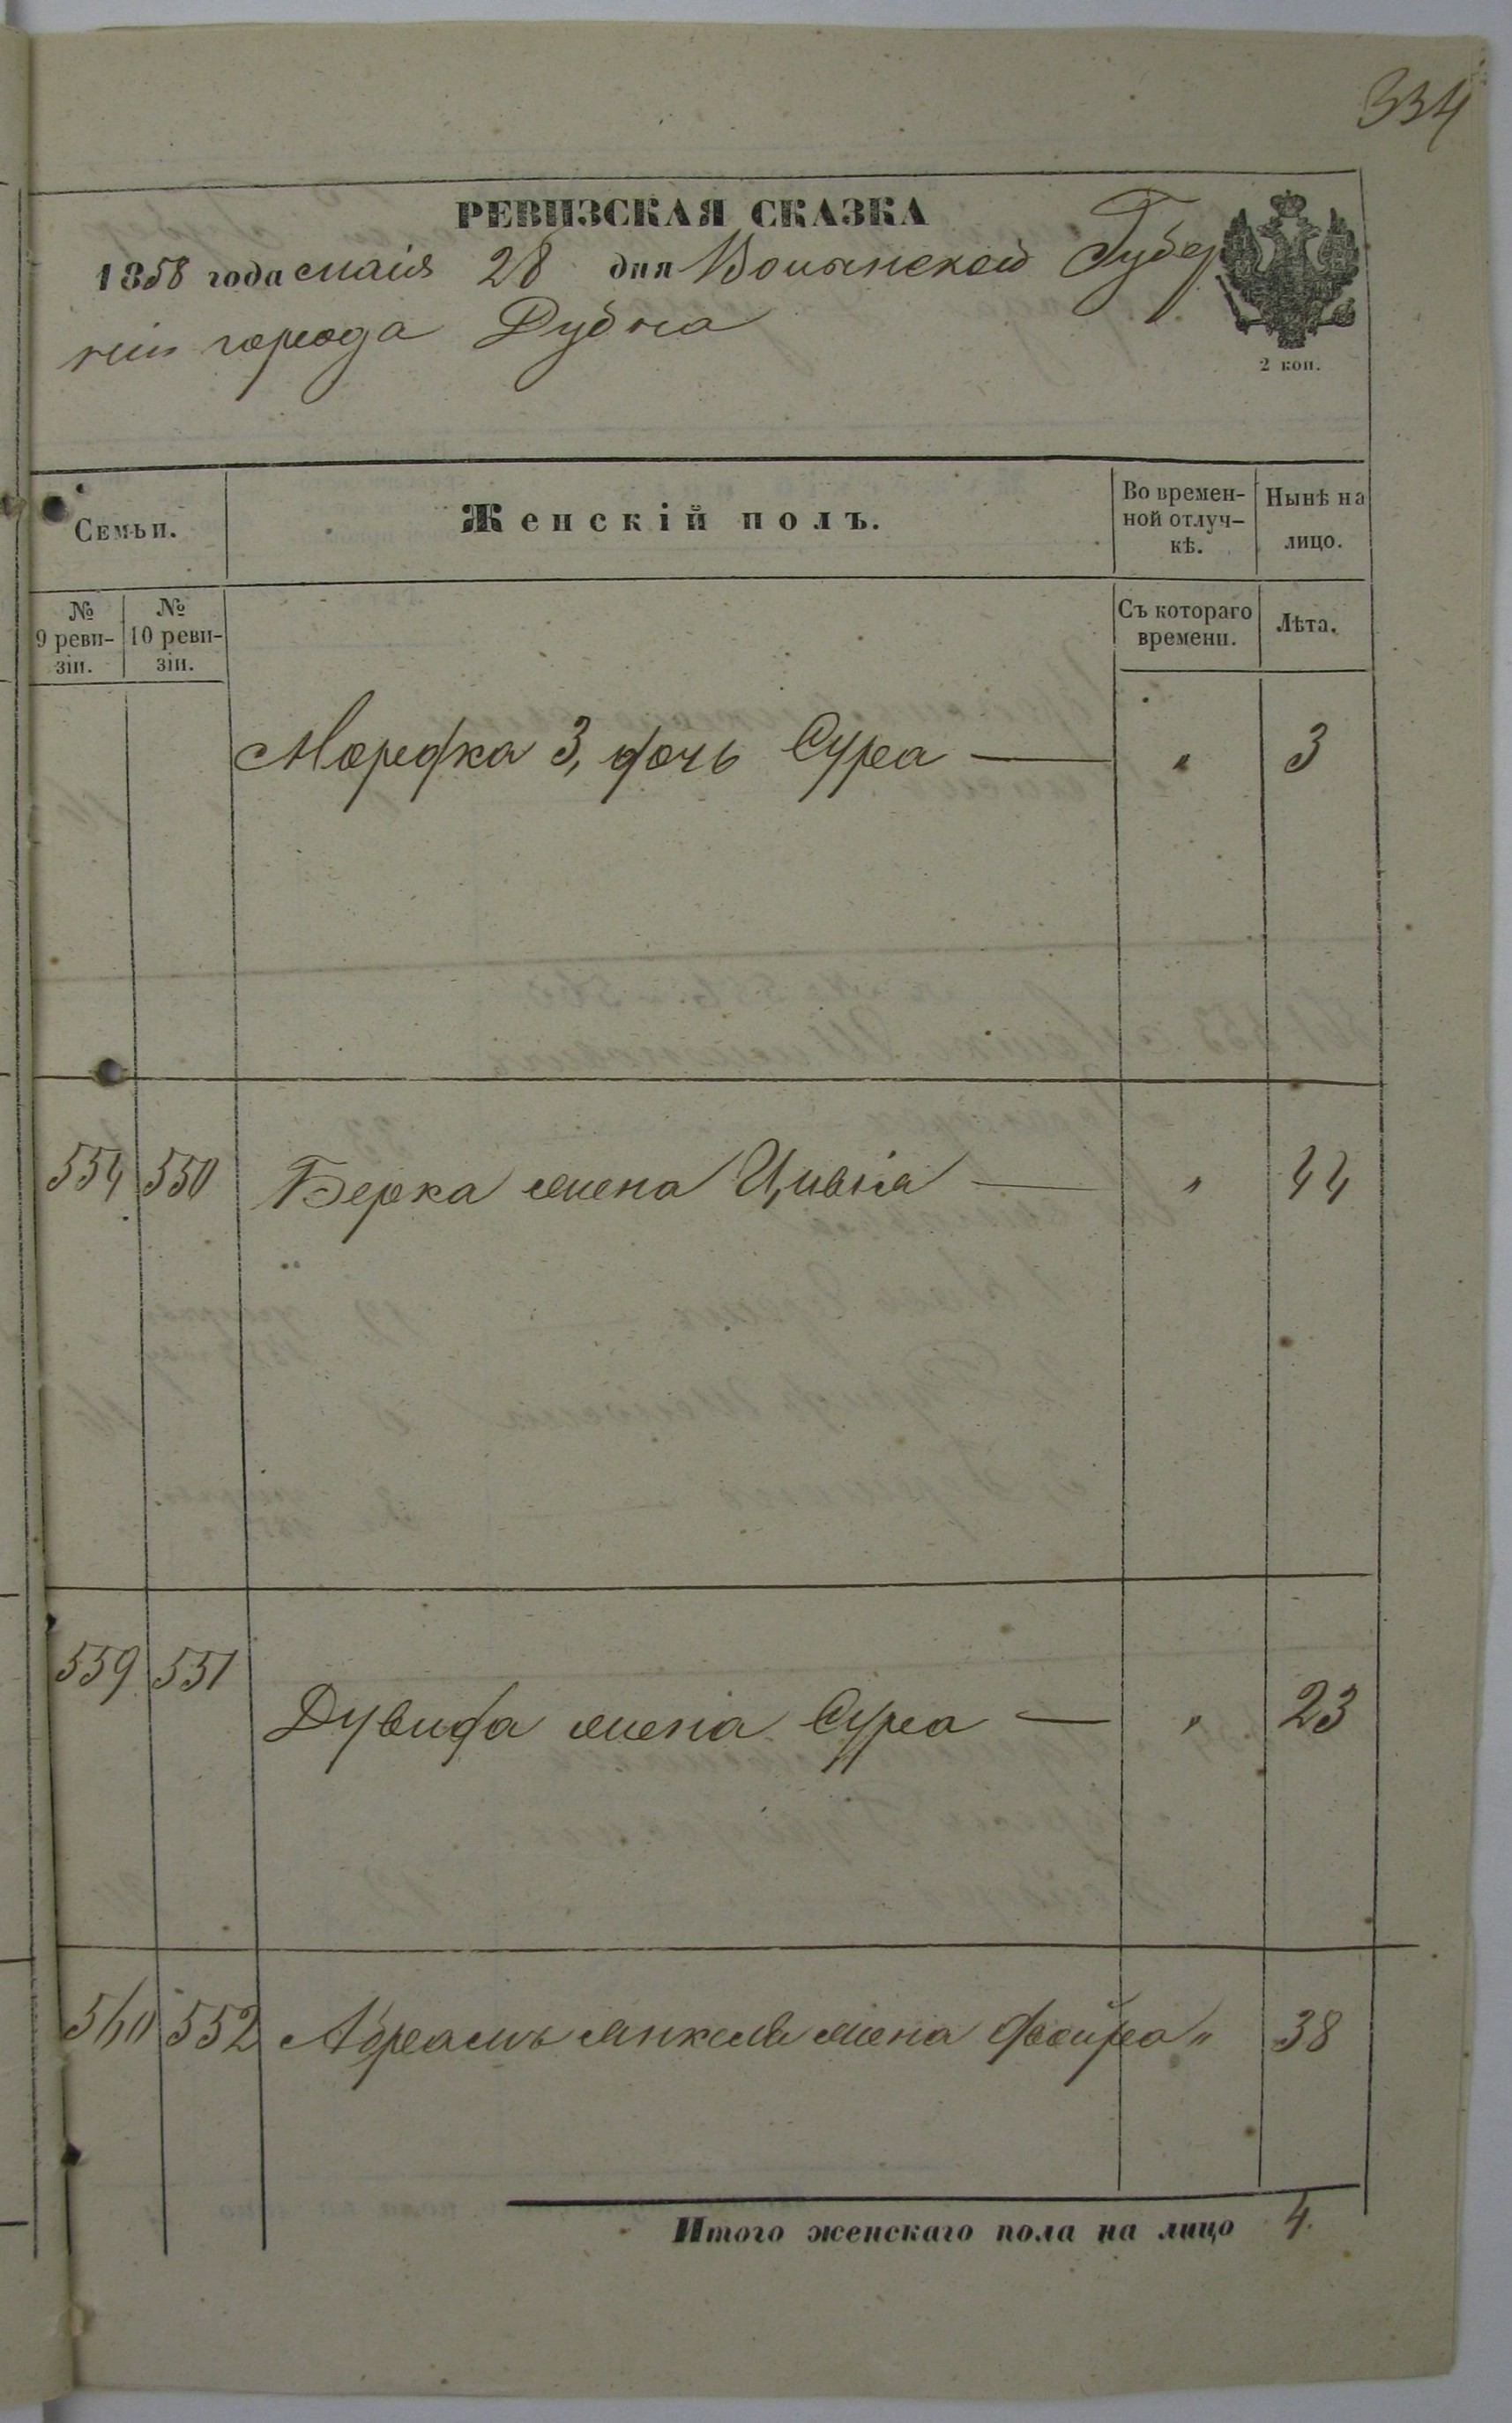 334
РЕВИЗСКАЯ СКАЗКА
1858 года маія 28 дня Волынской Губер
ніи города Дубна
2 коп.
Семьи.
Женскій полъ.
Во времен-
ной отлуч-
кѣ.
Нынѣ на
лицо.
№
9 реви-
зіи.
№
10 реви-
зіи.
Съ котораго
времени.
Лѣта.
Мордка 3, дочь Сура — " 3
554 550 Берка жена Цивіа — " 44
559 551 Дувида жена Сура — " 23
560 552 Абрамъ Янкеля жена Двойра " 38
Итого женскаго пола на лицо 4.